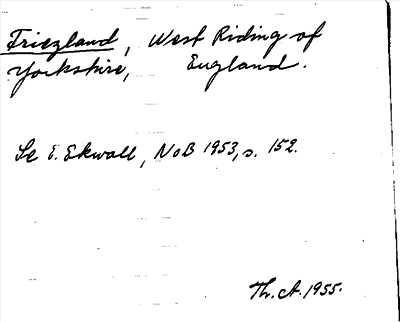 Friezland, West Riding of
Yorkshire, England.
Se E. Ekwall, NoB 1953, s. 152.
Th. A. 1955.